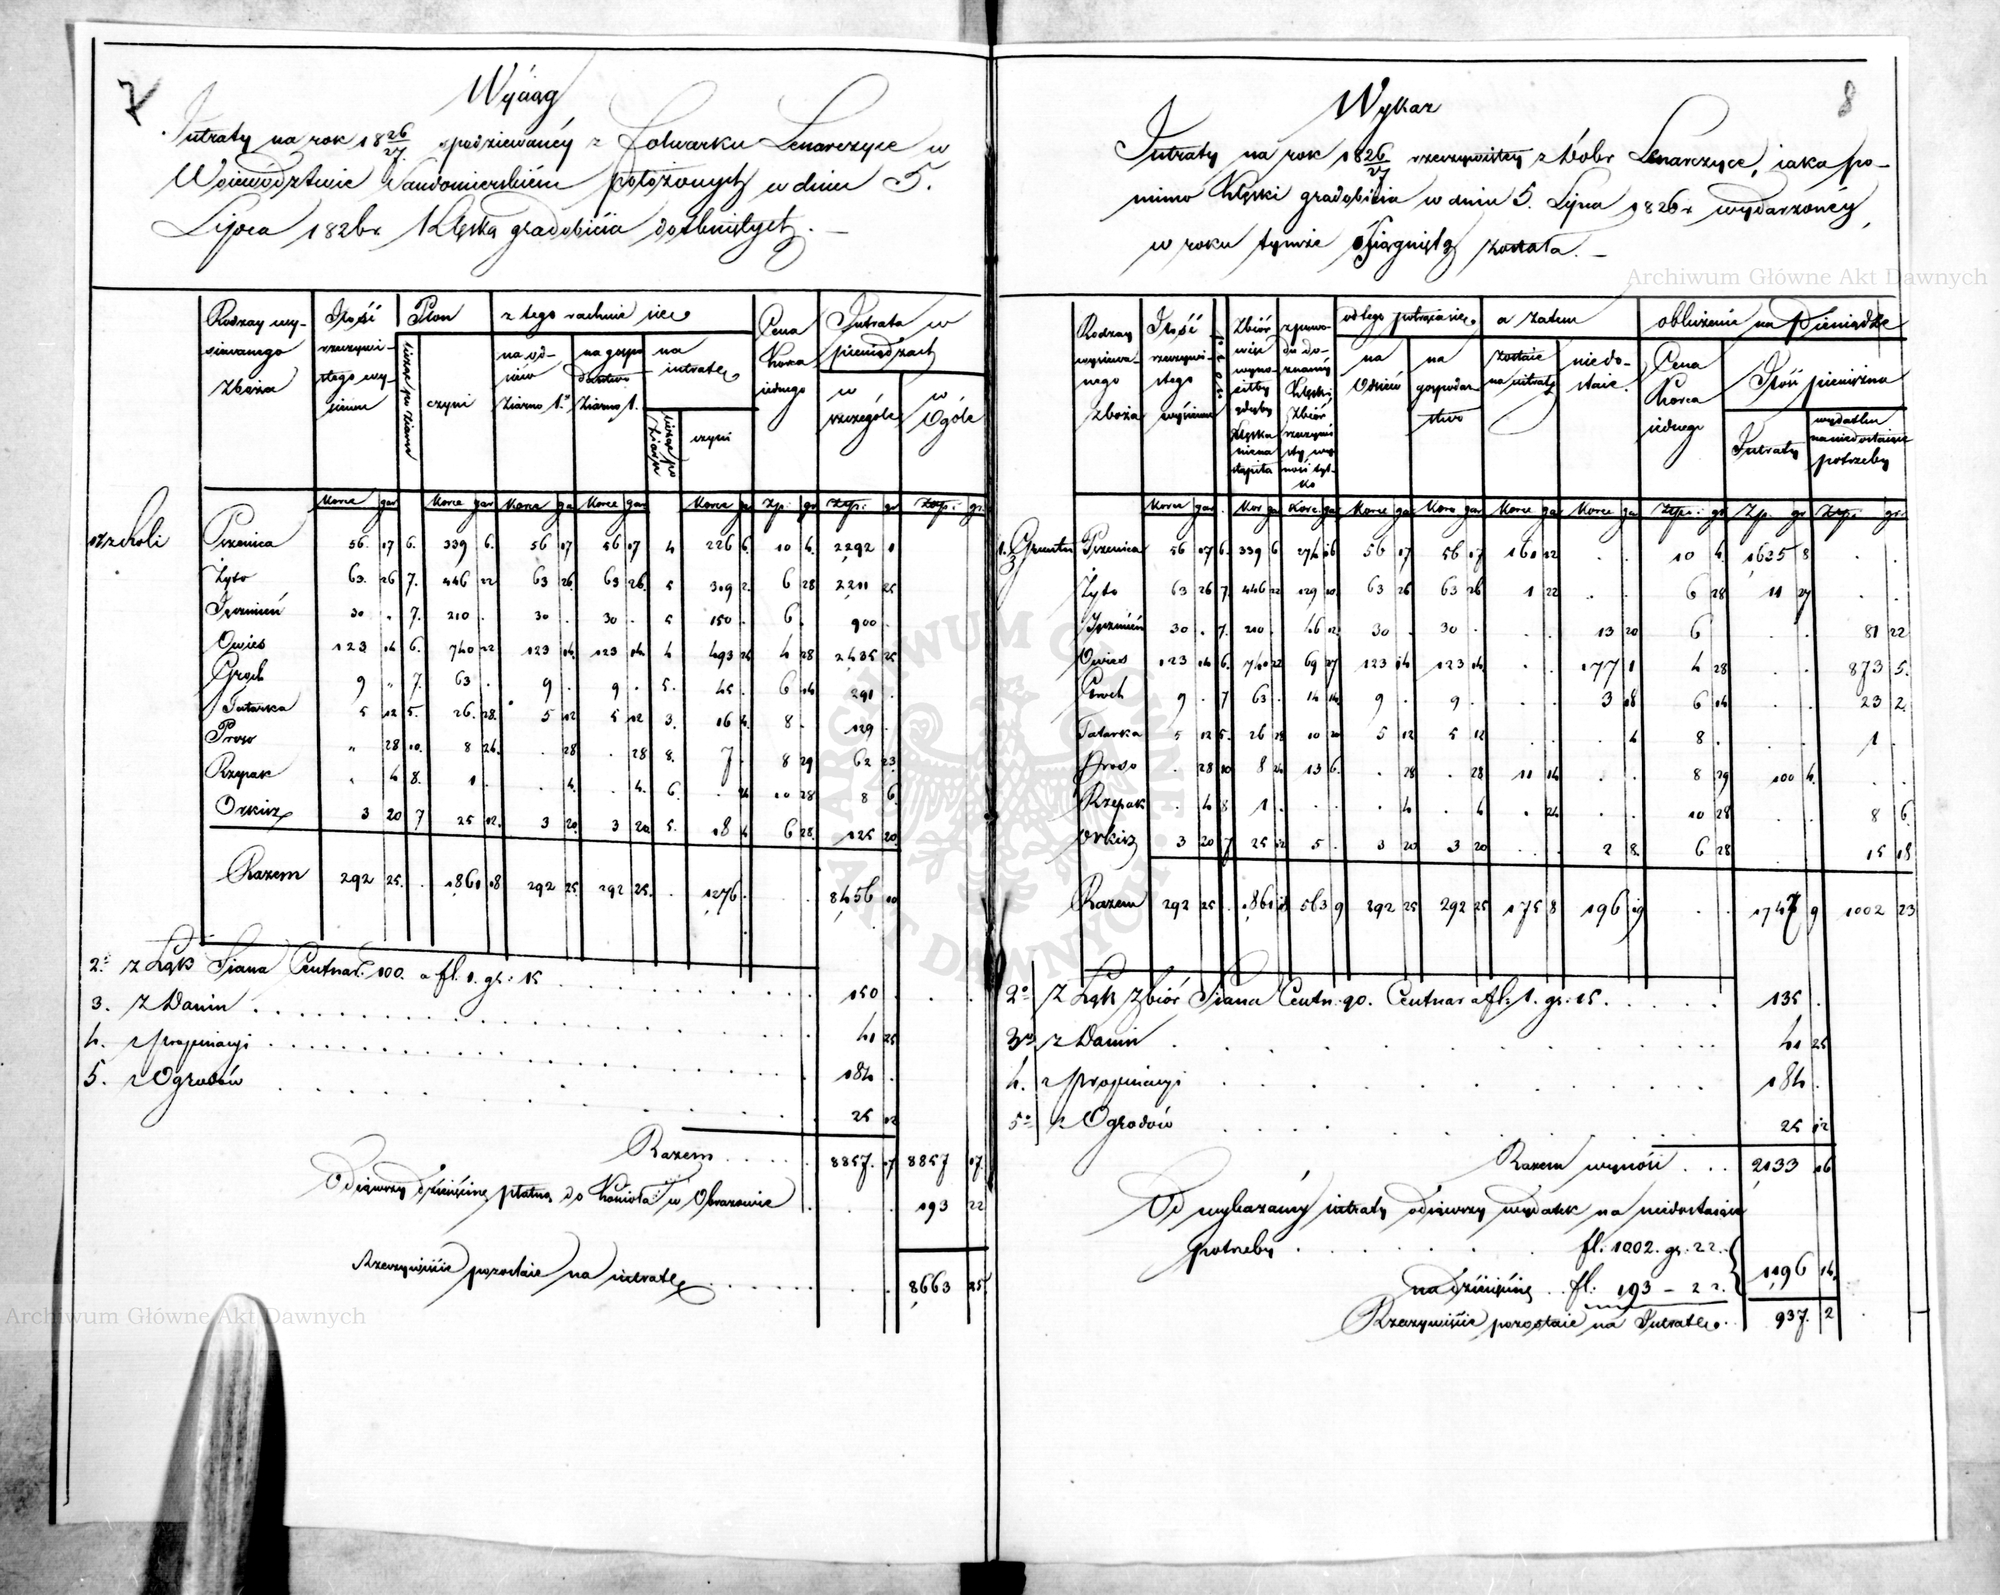 7
Wyciąg
Intraty na rok 18 26/27 spodziewanéy z Folwarku Lenarczyce w
Woiewództwie Sandomierskiém położonych w dniu 5.
Lipca 1826 r. Klęską gradobicia dotkniętych. —
Rodzay wysianego zboża | Ilość rzeczywistego wysiewu | Plon | z tego rachuie się | Cena korca iednego | Intrata w pieniądzach
licząc po ziarn | czyni | na odsiew ziarno 1. | na gospodarstwo ziarno 1. | na intratę | w szczególe | w Ogóle
licząc po ziarn | czyni
Korce | gar | Korce | gar | Korce | ga | Korce | gar | Korce | g | Zp. | gr | Złp. | gr | Złp. | gr.
1. z roli
Pszenica 56. 17 6. 339 6. 56 17 56 17 4 226 6. 10 4. 2292 1
Żyto 63. 26 7. 446 22 63 26. 63 26. 5 319 2. 6 28 2211 25
Jęczmień 30 „ 7. 210 . 30 . 30 . 5 150 . 6 . 900 .
Owies 123 14 6. 740 22 123 14. 123 14. 4 493 24 4 28 2435 25
Groch 9 „ 7. 63 . 9 . 9 . 5. 45 . 6 14 291 .
Tatarka 5 12 5. 26. 28. 5 12 5 12 3. 16 4. 8 . 129 .
Proso „ 28 10. 8 24. . 28 . 28 8. 7 . 8 29 62 23
Rzepak „ 4 8. 1 . . 4. . 4. 6. . 24 10 28 8 6.
Orkisz 3 20 7 25 12. 3 20. 3 20. 5. 18 4 6 28. 125 20
Razem 292 25. . 1861 18 292 25. 292 25. . 1276 . . . 8456 10
2. z Łąk Siana Centnar. 100. a fl. 1. gr. 15 150 .
3. z Danin 41 25
4. z Propinacyi 184 .
5. z Ogrodów 25 12
Razem 8857. 17 8857 17.
Odiąwszy dziesięcinę płatną do Kościoła w Obrazowie 193 22
Rzeczywiście pozostaie na intratę 8663 25
8
Wykaz
Intraty na rok 18 26/27 rzeczywistey z Dóbr Lenarczyce, iaka po-
mimo klęski gradobicia w dniu 5. Lipca 1826 r. wydarzonéy,
w roku tymże osiągniętą została. —
Rodzay wysiewanego zboża | Ilość rzeczywistego wysiewu | Zbiór wieleby wynosiłby gdyby klęska nienastąpiła | z powodu doznanéy klęski zbiór rzeczywisty wynosi tylko | od tego potrąca się | a zatem | obliczenie na Pieniądze
na Osiew | na gospodarstwo | zostaie na intratę | niedostaie | Cena Korca iednego | Ilość pieniężna
Intraty | wydatku na niedostaiące potrzeby
Korce | gar | Kor | ga | Korc. | ga | Korce | gar | Korc | gar. | Korce | ga | Korce | ga | Złp. | gr | Zp. | gr | Złp. | gr.
1. z Gruntu
Pszenica 56 17 6. 339 6 274 26 56 17 56 17 161 22 . . 10 4. 1625 8 . .
Żyto 63 26 7. 446 22 129 10. 63 26 63 26 1 22 . . 6 28 11 27 . .
Jęczmień 30 . 7. 210 . 46 12. 30 . 30 . . . 13 20 6 . . 81 22
Owies 123 14 6. 740 22 69 27 123 14 123 14. . . 177 1 4 28 . . 873 5.
Groch 9 . 7 63 . 14 14 9 . 9 . . . 3 18 6 14 . . 23 2.
Tatarka 5 12 5. 26 28 10 20 5 12 5 12 . . . 4 8 . . . 1 .
Proso . 28 10 8 24 13 6. . 28 . 28 11 14 . . 8 29 100 4. . .
Rzepak . 4 8 1 . . . . 4 . 4 . 24 . . 10 28 . . 8 6.
Orkisz 3 20 7 25 12 5 . 3 20 3 20 . . 2 8. 6 28 . . 15 18
Razem 292 25 . 1861 18 563 9 292 25 292 25 175 8 196 19 . . 1747 9 1002 23
2. z Łąk Zbiór Siana Centn. 90. Centnar a fl. 1. gr. 15. 135 .
3. z Danin 41 25
4. z Propinacyi 184 .
5. z Ogrodów 25 12
Razem wynosi 2133 16
Od wykazanéy intraty odiąwszy wydatek na niedostaiące
potrzeby fl. 1002. gr. 22.
na dziesięcinę fl. 193 – 22. 1196 14.
Rzeczywiście pozostaie na Intratę. 937. 2
Archiwum Główne Akt Dawnych
Archiwum Główne Akt Dawnych
ARCHIWUM GŁÓWNE AKT DAWNYCH